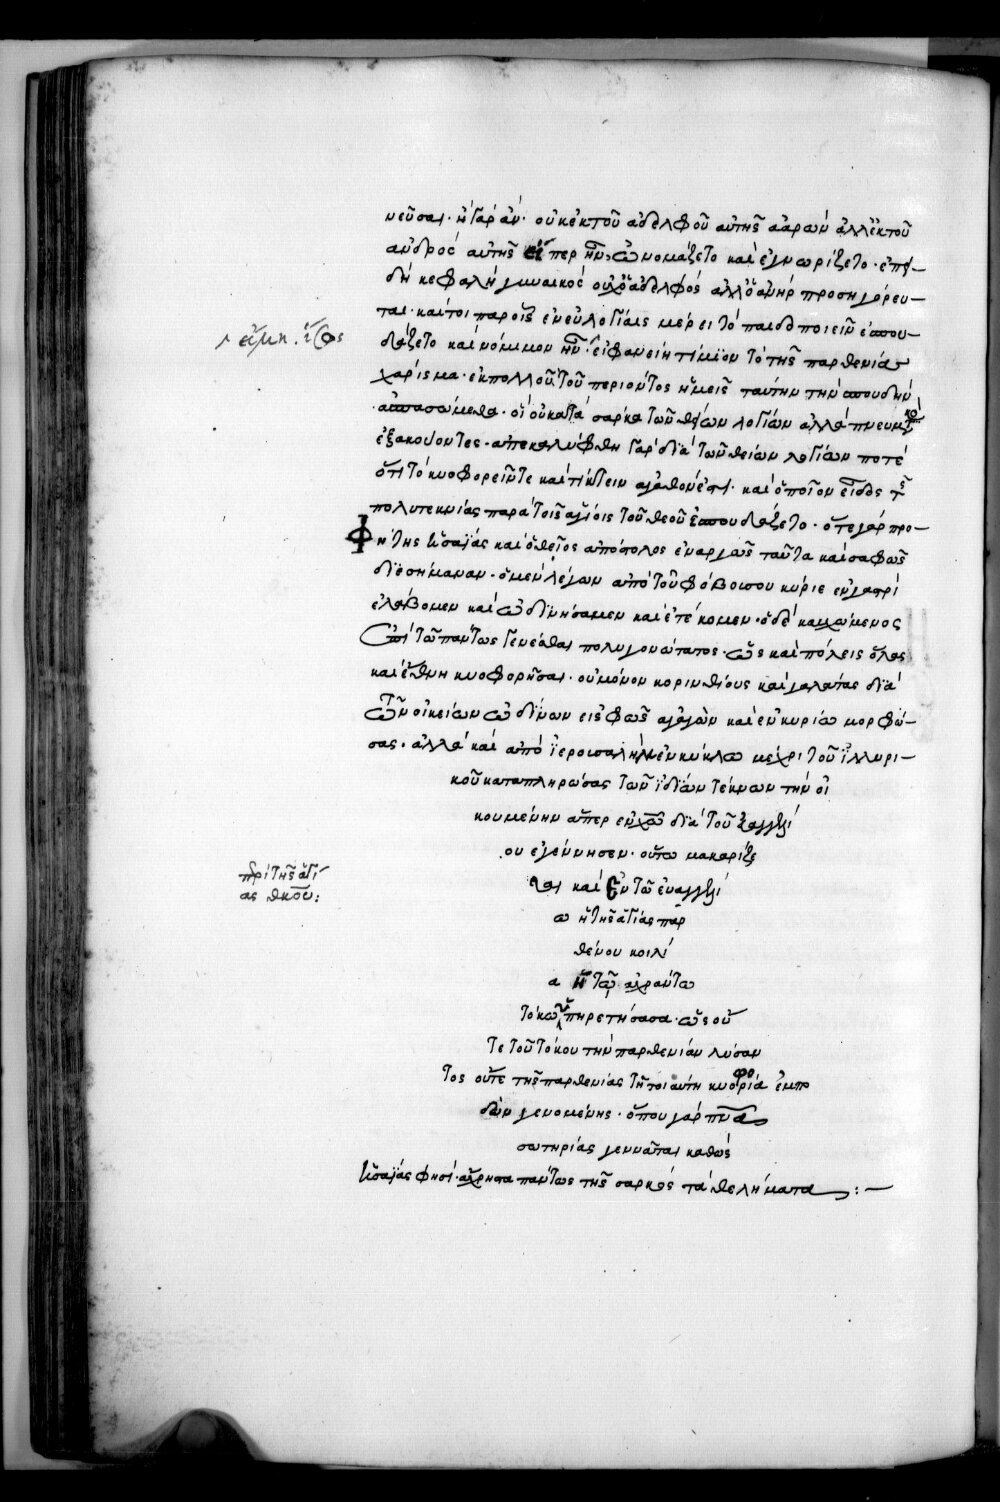 νεῦσαι· ἢ γὰρ ἂν· οὐκ ἐκ τοῦ ἀδελφοῦ αὐτῆς ἀαρὼν ἀλλ' ἐκ τοῦ
ἀνδρὸς αὐτῆς εἴπερ ἦν, ὠνομάζετο καὶ ἐγνωρίζετο· ἐπει–
δὴ κεφαλὴ γυναικὸς οὐχ ὁ ἀδελφὸς ἀλλ' ὁ ἀνὴρ προσηγόρευ–
ται· καίτοι παρ' οἷς ἐν εὐλογίαις μέρει τὸ παιδοποιεῖν ἐσπου–
δάζετο καὶ νόμιμον ἦν· εἰ φανείη τίμιον τὸ τῆς παρθενίας
χάρισμα· ἐκ πολλοῦ τοῦ περιόντος ἡμεῖς ταύτην τὴν σπουδὴν
ἀσπασώμεθα· οἱ οὐ κατὰ σάρκα τῶν θείων λογίων ἀλλὰ πνευματικῶς
ἐξακούοντες· ἀπεκαλύφθη γὰρ διὰ τῶν θείων λογίων ποτὲ
ὅτι τὸ κυοφορεῖν τε καὶ τίκτειν ἀγαθὸν ἐστὶ· καὶ ὁποῖον εἶδος τῆς
πολυτεκνίας παρὰ τοῖς ἁγίοις τοῦ θεοῦ ἐσπουδάζετο· ὅ τε γὰρ προ–
φήτης ἡσαΐας καὶ ὁ θεῖος ἀπόστολος ἐναργῶς ταῦτα καὶ σαφῶς
διεσήμαναν· ὁ μὲν λέγων ἀπὸ τοῦ φόβου σου κύριε ἐν γαστρὶ
ἐλάβομεν καὶ ὠδινήσαμεν καὶ ἐτέκομεν· ὁ δὲ καυχώμενος
ἐπὶ τῶ πάντως γενέσθαι πολυγονώτατος· ὡς καὶ πόλεις ὅλας
καὶ ἔθνη κυοφορῆσαι· οὐ μόνον κορινθίους καὶ γαλατὰς διὰ
τῶν οἰκείων ὠδίνων εἰς φῶς ἀγαγὼν καὶ ἐν κυρίω μορφώ–
σας· ἀλλὰ καὶ ἀπὸ ἱερουσαλὴμ ἐν κύκλω μέχρι τοῦ ἰλλυρι–
κοῦ καταπληρώσας τῶν ἰδίων τέκνων τὴν οἰ
κουμένην ἅπερ ἐν χῶ διὰ τοῦ εὐαγγελί
ου ἐγέννησεν· οὕτω μακαρίζε
ται καὶ ἐν τῶ εὐαγγελί
ω ἡ τῆς ἁγίας παρ
θένου κοιλί
α ἡ τῶ ἀχράντω
τόκω ὑπηρετήσασα· ὡς οὔ
τε τοῦ τόκου τὴν παρθενίαν λύσαν
τος οὔτε τῆς παρθενίας τῆ τοιαύτη κυοφορία ἐμπο
δὼν γενομένης· ὅπου γὰρ πνα
σωτηρίας γεννᾶται καθὼς
ἡσαΐας φησὶ· ἄχρηστα πάντως τῆς σαρκὸς τὰ θελήματα :—
περὶ τῆς ἁγί
ας θκου: